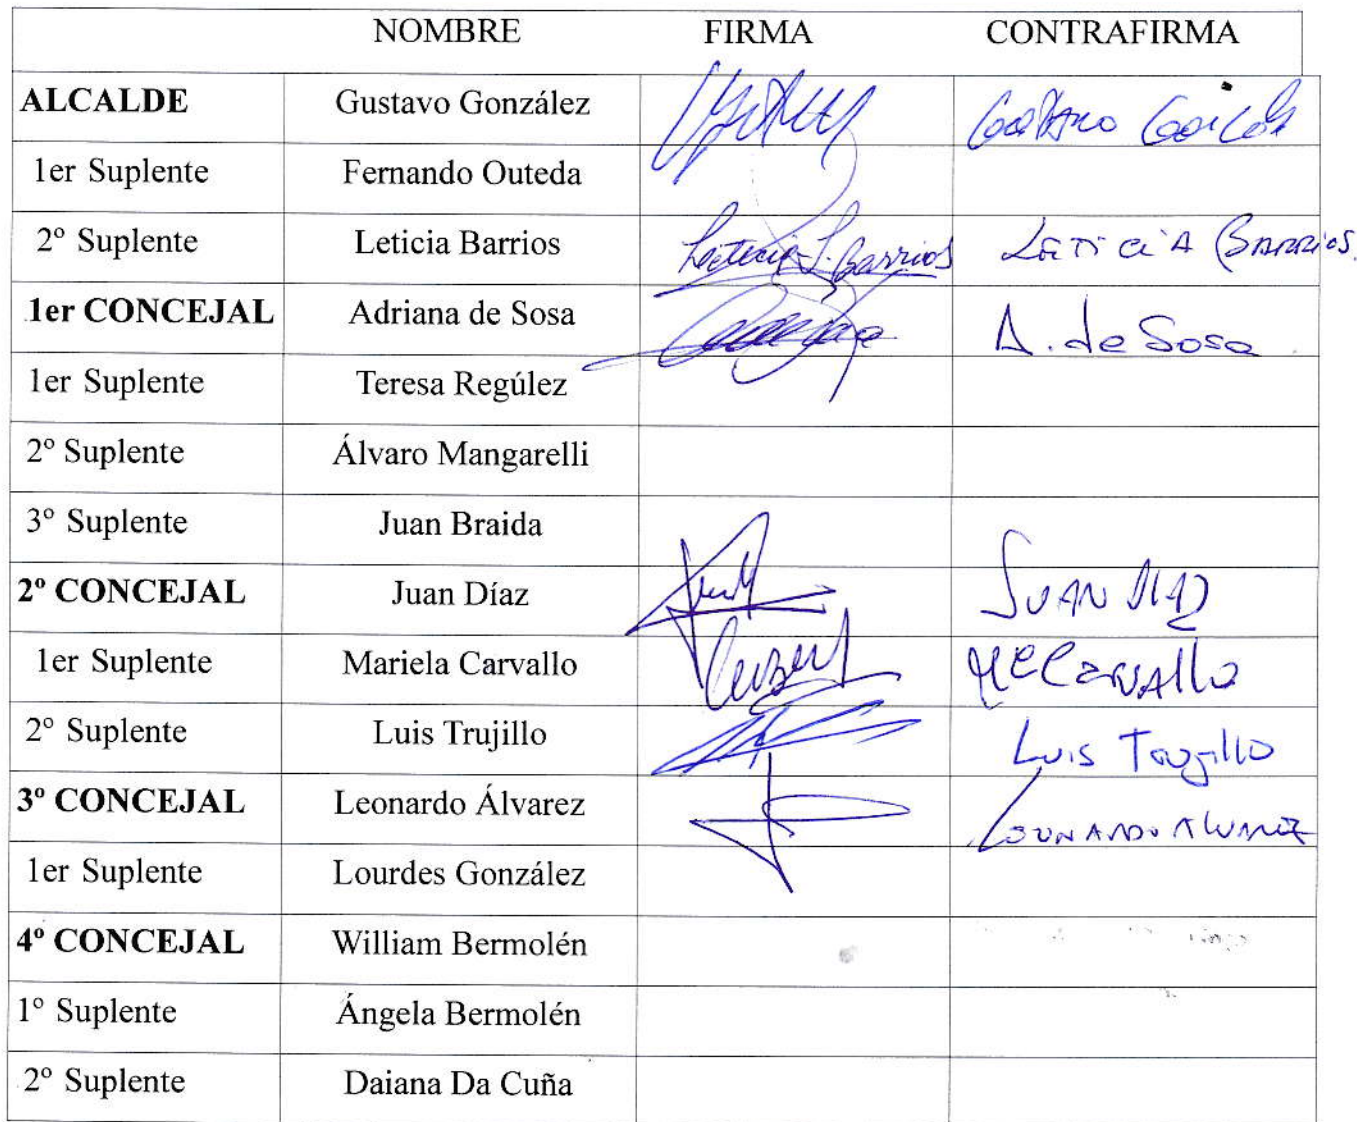 NOMBRE FIRMA CONTRAFIRMA
ALCALDE Gustavo González
1er Suplente Fernando Outeda
2º Suplente Leticia Barrios Leticia S. Barrios LETiCiA BARRiOS.
1er CONCEJAL Adriana de Sosa A. de Sosa
1er Suplente Teresa Regúlez
2º Suplente Álvaro Mangarelli
3º Suplente Juan Braida
2º CONCEJAL Juan Díaz JUAN DIAZ
1er Suplente Mariela Carvallo Carvallo
2º Suplente Luis Trujillo Luis Trujillo
3º CONCEJAL Leonardo Álvarez LEONARDO ALVAREZ
1er Suplente Lourdes González
4º CONCEJAL William Bermolén
1º Suplente Ángela Bermolén
2º Suplente Daiana Da Cuña